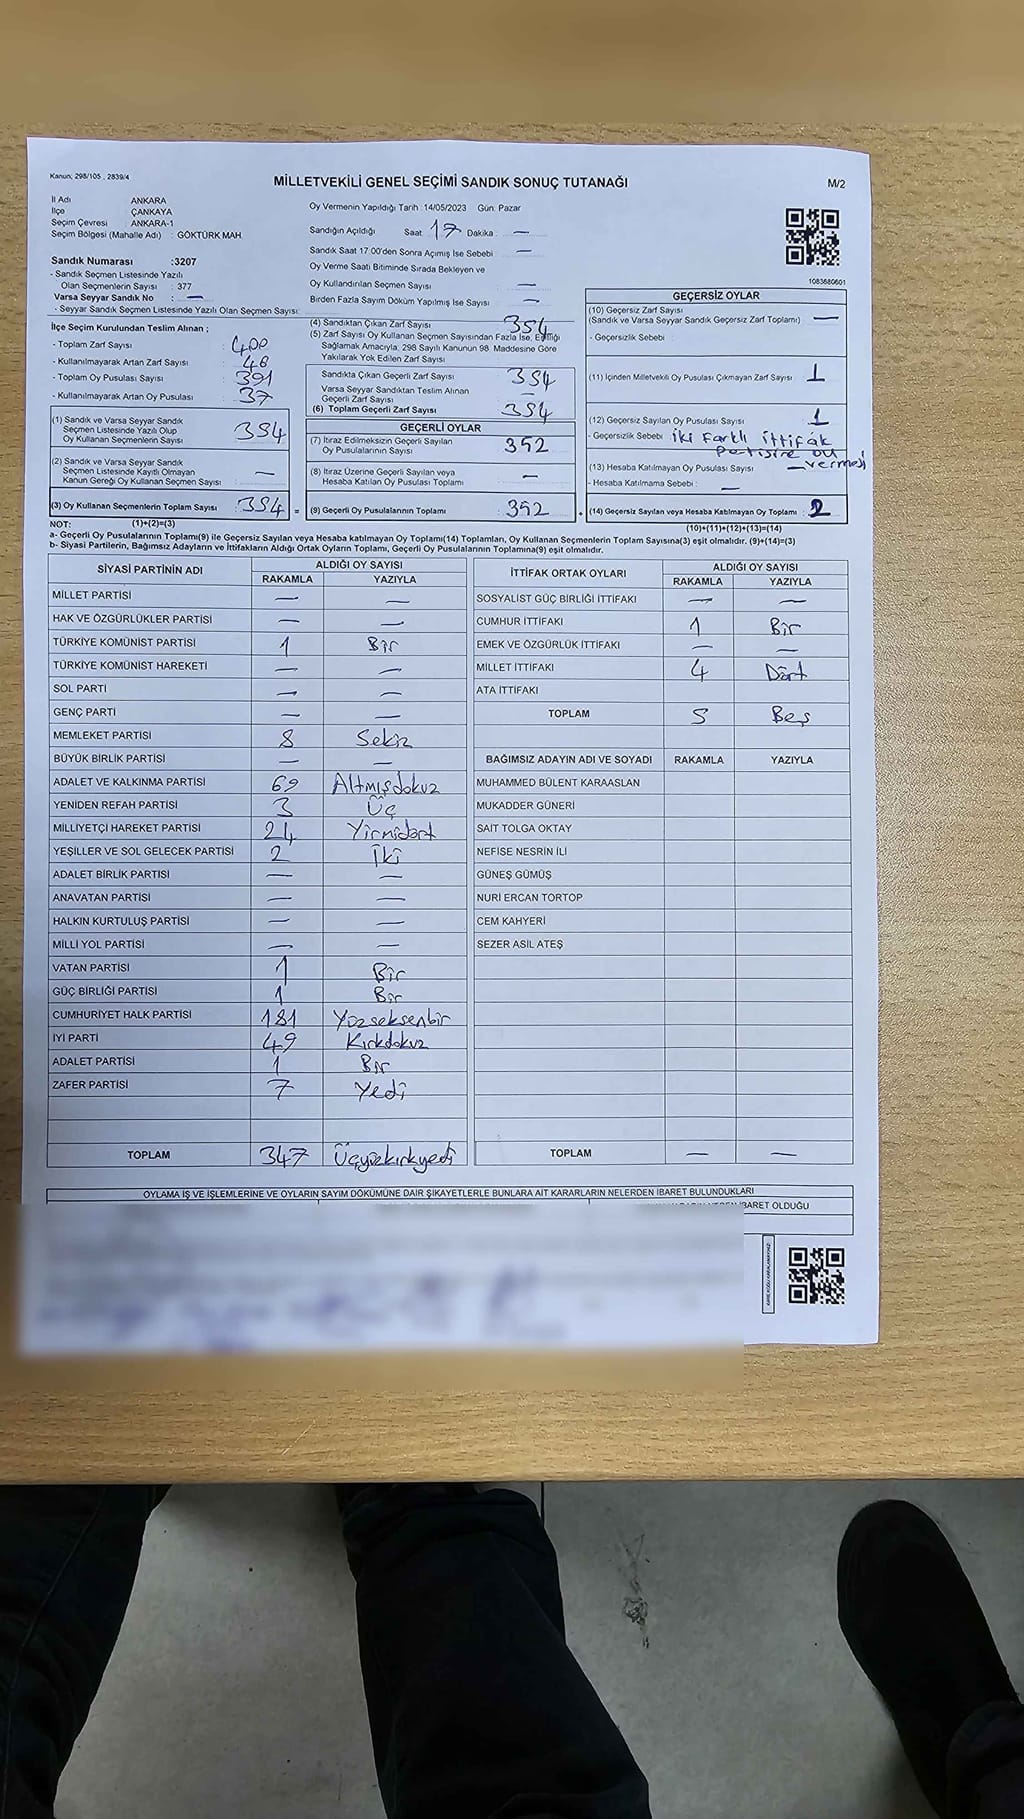 Kanun; 298/105 , 2839/4
MİLLETVEKİLİ GENEL SEÇİMİ SANDIK SONUÇ TUTANAĞI
M/2
İl Adı ANKARA
İlçe ÇANKAYA
Seçim Çevresi ANKARA-1
Seçim Bölgesi (Mahalle Adı) : GÖKTÜRK MAH.
Sandık Numarası :3207
- Sandık Seçmen Listesinde Yazılı
Olan Seçmenlerin Sayısı : 377
Varsa Seyyar Sandık No : —
- Seyyar Sandık Seçmen Listesinde Yazılı Olan Seçmen Sayısı:
İlçe Seçim Kurulundan Teslim Alınan ;
- Toplam Zarf Sayısı : 400
- Kullanılmayarak Artan Zarf Sayısı : 46
- Toplam Oy Pusulası Sayısı : 391
- Kullanılmayarak Artan Oy Pusulası : 37
(1) Sandık ve Varsa Seyyar Sandık
Seçmen Listesinde Yazılı Olup
Oy Kullanan Seçmenlerin Sayısı : 354
(2) Sandık ve Varsa Seyyar Sandık
Seçmen Listesinde Kayıtlı Olmayan
Kanun Gereği Oy Kullanan Seçmen Sayısı : —
(3) Oy Kullanan Seçmenlerin Toplam Sayısı : 354 =
Oy Vermenin Yapıldığı Tarih :14/05/2023 Gün: Pazar
Sandığın Açıldığı Saat: 17 Dakika : —
Sandık Saat 17.00'den Sonra Açımış İse Sebebi : —
Oy Verme Saati Bitiminde Sırada Bekleyen ve
Oy Kullandırılan Seçmen Sayısı : —
Birden Fazla Sayım Döküm Yapılmış İse Sayısı : —
(4) Sandıktan Çıkan Zarf Sayısı : 354
(5) Zarf Sayısı Oy Kullanan Seçmen Sayısından Fazla İse, Eşitliği
Sağlamak Amacıyla; 298 Sayılı Kanunun 98. Maddesine Göre
Yakılarak Yok Edilen Zarf Sayısı :
Sandıkta Çıkan Geçerli Zarf Sayısı : 354
Varsa Seyyar Sandıktan Teslim Alınan
Geçerli Zarf Sayısı : —
(6) Toplam Geçerli Zarf Sayısı : 354
GEÇERLİ OYLAR
(7) İtiraz Edilmeksizin Geçerli Sayılan
Oy Pusulalarının Sayısı : 352
(8) İtiraz Üzerine Geçerli Sayılan veya
Hesaba Katılan Oy Pusulası Toplamı : —
(9) Geçerli Oy Pusulalarının Toplamı : 352
1083680601
GEÇERSİZ OYLAR
(10) Geçersiz Zarf Sayısı
(Sandık ve Varsa Seyyar Sandık Geçersiz Zarf Toplamı) : —
- Geçersizlik Sebebi :
(11) İçinden Milletvekili Oy Pusulası Çıkmayan Zarf Sayısı : 1
(12) Geçersiz Sayılan Oy Pusulası Sayısı : 1
- Geçersizlik Sebebi : iki farklı ittifak
Partisine oy
vermesi
(13) Hesaba Katılmayan Oy Pusulası Sayısı : —
- Hesaba Katılmama Sebebi : —
(14) Geçersiz Sayılan veya Hesaba Katılmayan Oy Toplamı : 2
NOT: (1)+(2)=(3) (10)+(11)+(12)+(13)=(14)
a- Geçerli Oy Pusulalarının Toplamı(9) ile Geçersiz Sayılan veya Hesaba katılmayan Oy Toplamı(14) Toplamları, Oy Kullanan Seçmenlerin Toplam Sayısına(3) eşit olmalıdır. (9)+(14)=(3)
b- Siyasi Partilerin, Bağımsız Adayların ve İttifakların Aldığı Ortak Oyların Toplamı, Geçerli Oy Pusulalarının Toplamına(9) eşit olmalıdır.
SİYASİ PARTİNİN ADI ALDIĞI OY SAYISI
RAKAMLA YAZIYLA
MİLLET PARTİSİ — —
HAK VE ÖZGÜRLÜKLER PARTİSİ — —
TÜRKİYE KOMÜNİST PARTİSİ 1 Bir
TÜRKİYE KOMÜNİST HAREKETİ — —
SOL PARTİ — —
GENÇ PARTİ — —
MEMLEKET PARTİSİ 8 Sekiz
BÜYÜK BİRLİK PARTİSİ — —
ADALET VE KALKINMA PARTİSİ 69 Altmışdokuz
YENİDEN REFAH PARTİSİ 3 Üç
MİLLİYETÇİ HAREKET PARTİSİ 24 Yirmidört
YEŞİLLER VE SOL GELECEK PARTİSİ 2 İki
ADALET BİRLİK PARTİSİ — —
ANAVATAN PARTİSİ — —
HALKIN KURTULUŞ PARTİSİ — —
MİLLİ YOL PARTİSİ — —
VATAN PARTİSİ 1 Bir
GÜÇ BİRLİĞİ PARTİSİ 1 Bir
CUMHURİYET HALK PARTİSİ 181 Yüzseksenbir
İYİ PARTİ 49 Kırkdokuz
ADALET PARTİSİ 1 Bir
ZAFER PARTİSİ 7 Yedi
TOPLAM 347 Üçyüzkırkyedi
İTTİFAK ORTAK OYLARI ALDIĞI OY SAYISI
RAKAMLA YAZIYLA
SOSYALİST GÜÇ BİRLİĞİ İTTİFAKI — —
CUMHUR İTTİFAKI 1 Bir
EMEK VE ÖZGÜRLÜK İTTİFAKI — —
MİLLET İTTİFAKI 4 Dört
ATA İTTİFAKI
TOPLAM 5 Beş
BAĞIMSIZ ADAYIN ADI VE SOYADI RAKAMLA YAZIYLA
MUHAMMED BÜLENT KARAASLAN
MUKADDER GÜNERİ
SAİT TOLGA OKTAY
NEFİSE NESRİN İLİ
GÜNEŞ GÜMÜŞ
NURİ ERCAN TORTOP
CEM KAHYERİ
SEZER ASİL ATEŞ
TOPLAM — —
OYLAMA İŞ VE İŞLEMLERİNE VE OYLARIN SAYIM DÖKÜMÜNE DAİR ŞİKAYETLERLE BUNLARA AİT KARARLARIN NELERDEN İBARET BULUNDUKLARI
İBARET OLDUĞU